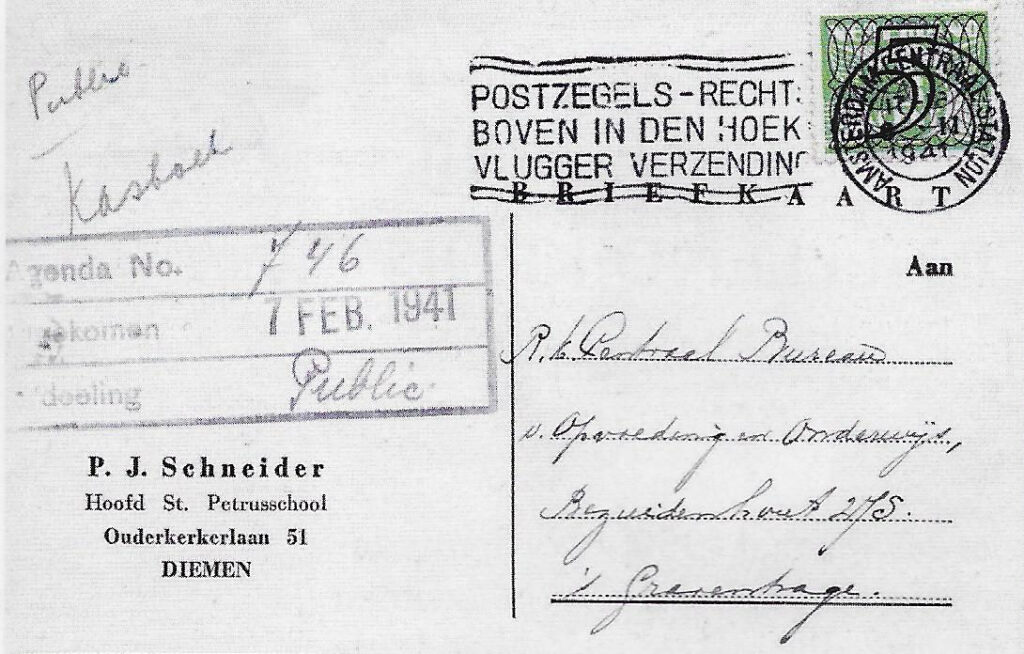 Public
Kasboek
POSTZEGELS-RECHT
BOVEN IN DEN HOEK
VLUGGER VERZENDING
AMSTERDAM CENTRAAL STATION
1941
5
BRIEFKAART
Agenda No. 746
7 FEB. 1941
Public.
P. J. Schneider
Hoofd St. Petrusschool
Ouderkerkerlaan 51
DIEMEN
Aan
R.k. Centraal Bureau
v. Opvoeding en Onderwijs,
Bezuidenhout 275.
's Gravenhage.